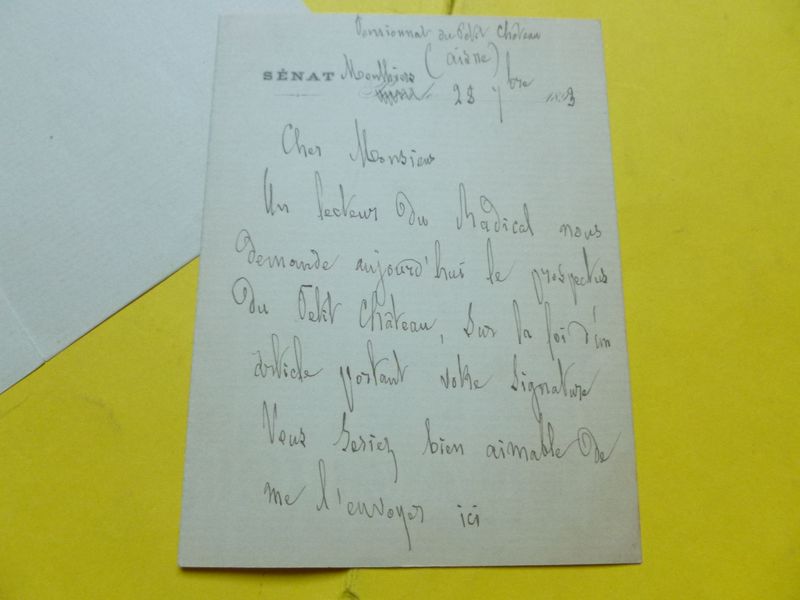 Pensionnat du Petit Château
(aisne)
SÉNAT Monthiers
28 7bre
Cher Monsieur
Un lecteur du Radical nous
demande aujourd'hui le prospectus
du Petit Château, sur la foi d'un
article portant votre signature
Vous seriez bien aimable de
me l'envoyer ici